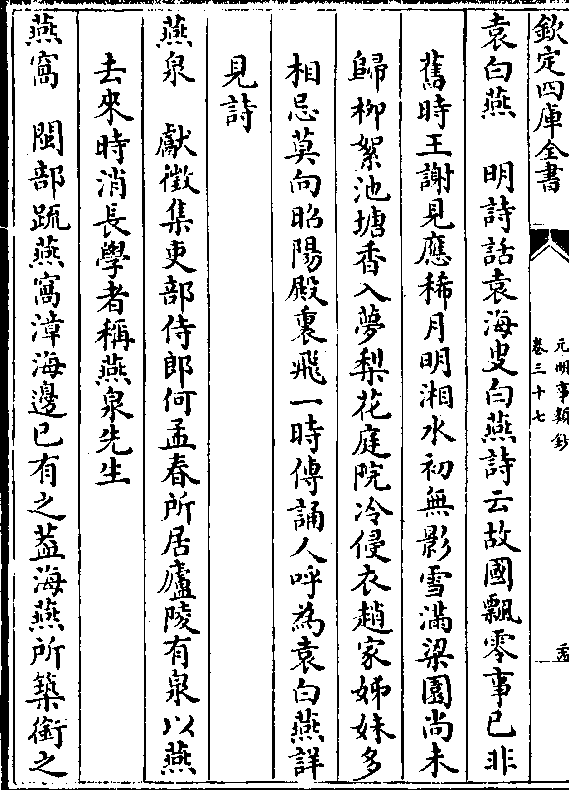 欽定四庫全書
元明事類鈔
卷三十七
袁白燕　明詩話袁海叟白燕詩云故國飄零事已非
舊時王謝見應稀月明湘水初無影雪滿梁園尚未
歸柳絮池塘香入夢梨花庭院冷侵衣趙家姊妹多
相忌莫向昭陽殿裏飛一時傳誦人呼為袁白燕詳
見詩
燕泉　獻徵集吏部侍郎何孟春所居廬陵有泉以燕
去來時消長學者稱燕泉先生
燕窩　閩部䟽燕窩漳海邊已有之葢海燕所築銜之